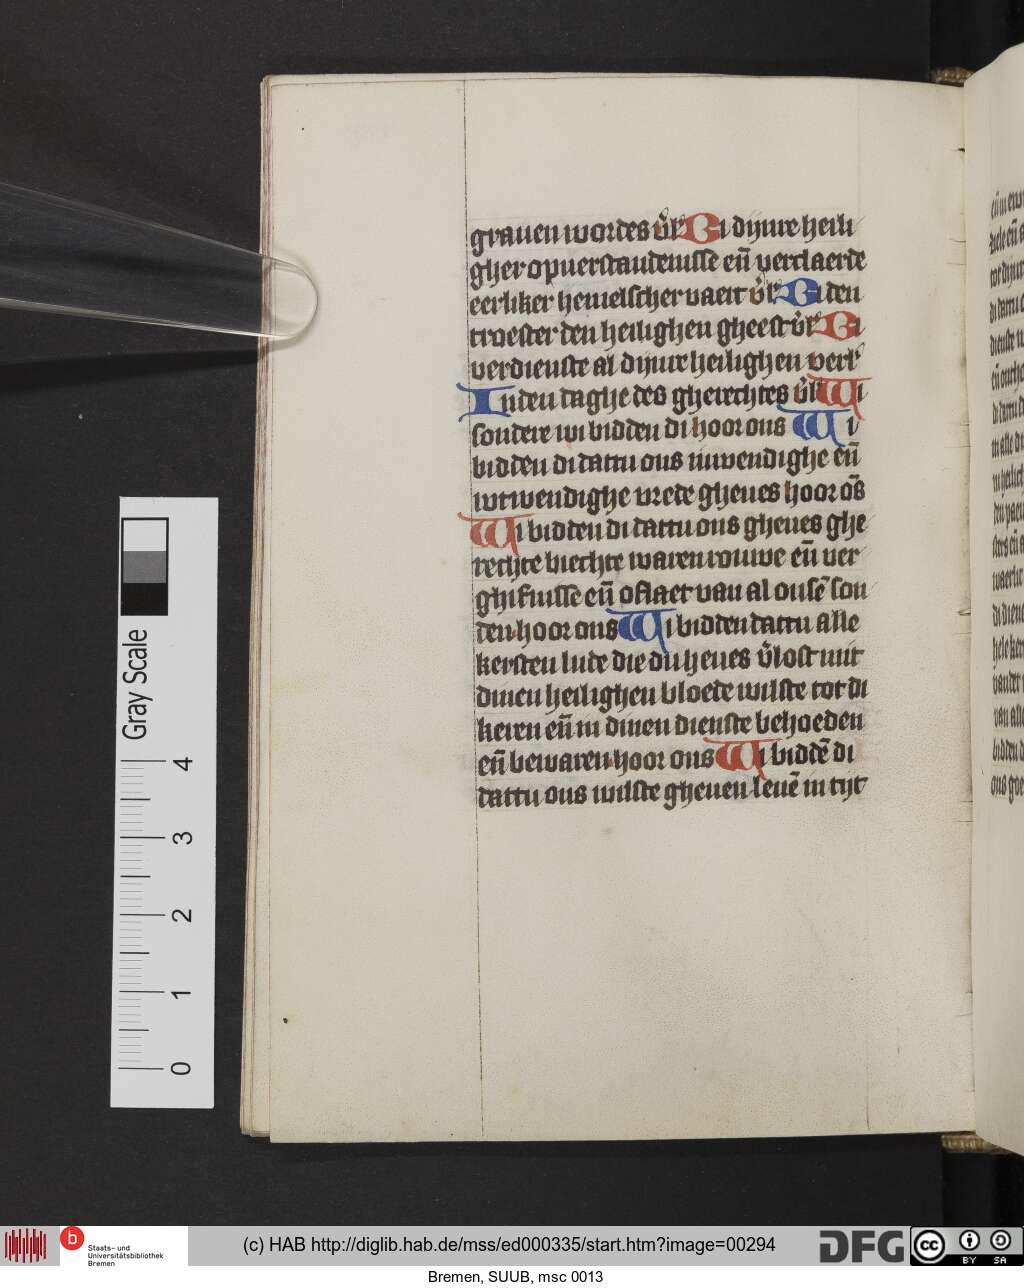 grauen wordes v̄l' Bi dynre heili
gher opuerstandenisse eñ verclaerde
eerliker hemelscher vaert v̄l' Bi den
troester den heilighen gheest v̄l' Bi
verdienste al dynre heilighen verl'
Inden daghe des gherechtes v̄l' Wi
sondere wi bidden di hoor ons Wi
bidden di dattu ons inwendighe eñ
wtwendighe vrede gheues hoor ōs
Wi bidden di dattu ons gheues ghe
rechte biechte waren rouwe eñ ver
ghifnisse eñ oflaet van al onsē son
den hoor ons Wi bidden dattu alle
kersten lude die du heues v̄lost mit
dinen heilighen bloede wilste tot di
keren eñ in dinen dienste behoeden
eñ bewaren hoor ons Wi biddē di
dattu ons wilste gheuen leuē in tyt
Gray Scale
4
3
2
1
0
b
Staats- und
Universitätsbibliothek
Bremen
(c) HAB http://diglib.hab.de/mss/ed000335/start.htm?image=00294
DFG
cc
BY SA
Bremen, SUUB, msc 0013